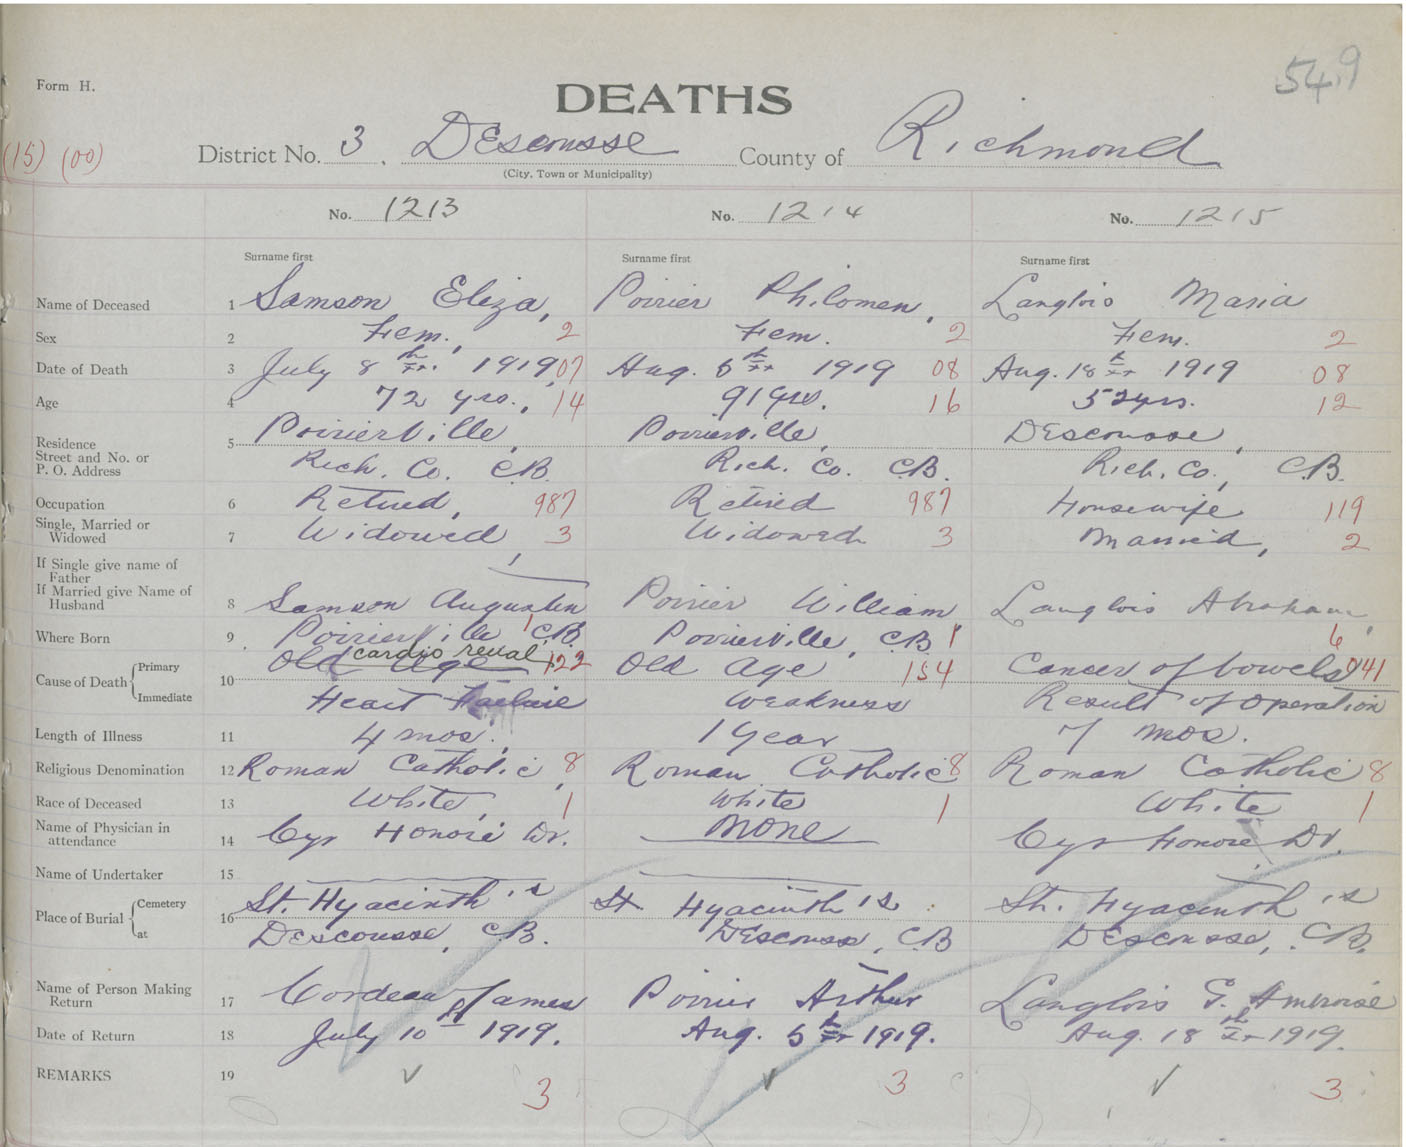 Form H.
549
DEATHS
(15) (00)
District No. 3. DEscousse County of Richmond
(City, Town or Municipality)
No. 1213 No. 1214 No. 1215
Surname first Surname first Surname first
Name of Deceased 1 Samson Eliza, Poirier Philomen, Langlois Maria
Sex 2 Fem., 2 Fem. 2 Fem. 2
Date of Death 3 July 8th 1919, 07 Aug. 5th 1919 08 Aug. 18th 1919 08
Age 4 72 yrs., 14 91 yrs. 16 52 yrs. 12
Residence 5 PoirierVille, PoirierVille, DEscousse,
Street and No. or
P. O. Address Rich. Co. C.B. Rich. Co. C.B. Rich. Co., C.B.
Occupation 6 Retired, 987 Retired 987 Housewife 119
Single, Married or
Widowed 7 Widowed 3 Widowed 3 Married, 2
If Single give name of
Father
If Married give Name of
Husband 8 Samson Augustin Poirier William Langlois Abraham,
Where Born 9 PoirierVille C.B. 1 PoirierVille, C.B. 1 6
Cause of Death Primary 10 Old Age cardio renal 122 Old Age 154 Cancer of bowels 041
Immediate Heart Failure Weakness Result of operation
Length of Illness 11 4 mos. 1 Year 7 mos.
Religious Denomination 12 Roman Catholic, 8 Roman Catholic 8 Roman Catholic 8
Race of Deceased 13 White, 1 White 1 White 1
Name of Physician in
attendance 14 Cyr Honoré Dr. None Cyr Honoré, Dr.
Name of Undertaker 15
Place of Burial Cemetery 16 St. Hyacinth's St. Hyacinth's St. Hyacinth's
at DEscousse, C.B. DEscousse, C.B DEscousse, C.B.
Name of Person Making
Return 17 Cordeau James Poirier Arthur Langlois G. Ambroise
Date of Return 18 July 10th 1919. Aug. 5th 1919. Aug. 18th 1919.
REMARKS 19 3 3 3